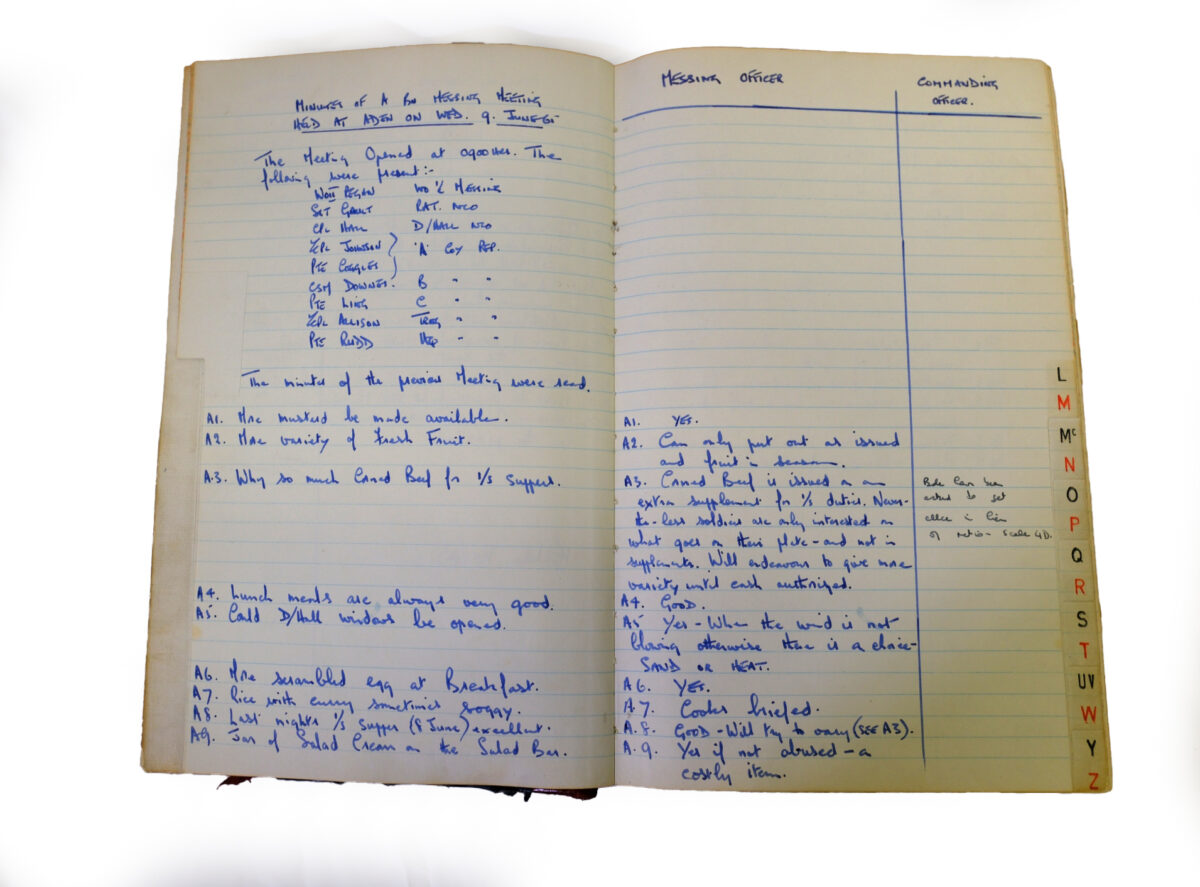 MINUTES OF A BN MESSING MEETING
HELD AT ADEN ON WED. 9. JUNE
The Meeting Opened at 0900HRS. The
following were present:-
WOII PEGAN WO 1/C MESSING
SGT GRANT RAT. NCO
CPL HALL D/HALL NCO
L/CPL JOHNSON 'A' COY REP.
PTE
CSM DOWNES. B " "
PTE LING C " "
L/CPL ALLISON " "
PTE RUDD HQ " "
The minutes of the previous Meeting were read.
A1. More mustard be made available.
A2. More variety of Fresh Fruit.
A.3. Why so much Corned Beef for 1/S suppers.
A4. Lunch meals are always very good.
A5. Could D/Hall windows be opened.
A6. More scrambled egg at Breakfast.
A7. Rice with curry sometimes soggy.
A8. Last nights 1/S Supper (8 June) excellent.
A9. Jar of Salad Cream on the Salad Bar.
MESSING OFFICER
A1. YES.
A2. Can only put out as issued
and fruit in season.
A3. Corned Beef is issued as an
extra supplement for 1/S duties. Never-
the-less soldiers are only interested in
what goes on their plate - and not in
supplements. Will endeavour to give more
variety until cash authorized.
A4. GOOD.
A5 Yes - When the wind is not
blowing otherwise there is a choice-
SAND OR HEAT.
A6. YES.
A.7. Cooks briefed.
A.8. GOOD - Will try to vary (SEE A3).
A.9. Yes if not abused - a
costly item.
COMMANDING
OFFICER.
have been
asked to get
in lieu
of ration - Scale
L
M
Mc
N
O
P
Q
R
S
T
UV
W
Y
Z